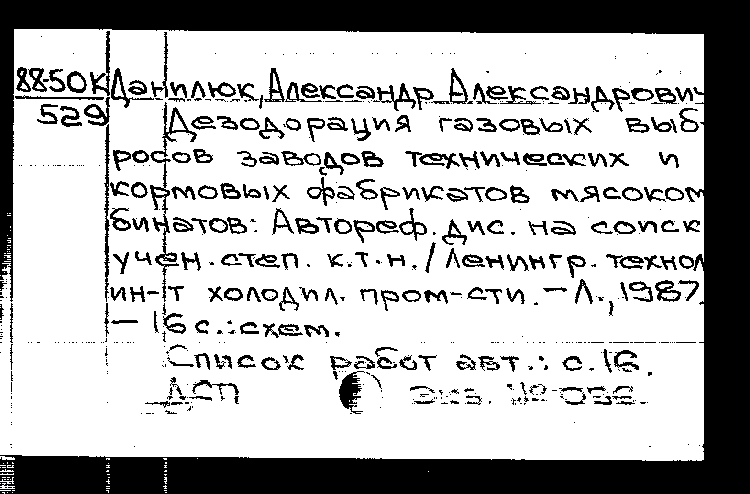 88-50К Данилюк, Александр Александрович
529 Дезодорация газовых выб-
росов заводов технических и
кормовых фабрикатов мясоком
бинатов: Автореф. дис. на соиск
учен. степ. к.т.н. / Ленингр. технол
ин-т холодил. пром-сти. – Л., 1987.
– 16 с.: схем.
Список работ авт.: с. 16.
ДСП Экз. № 036.